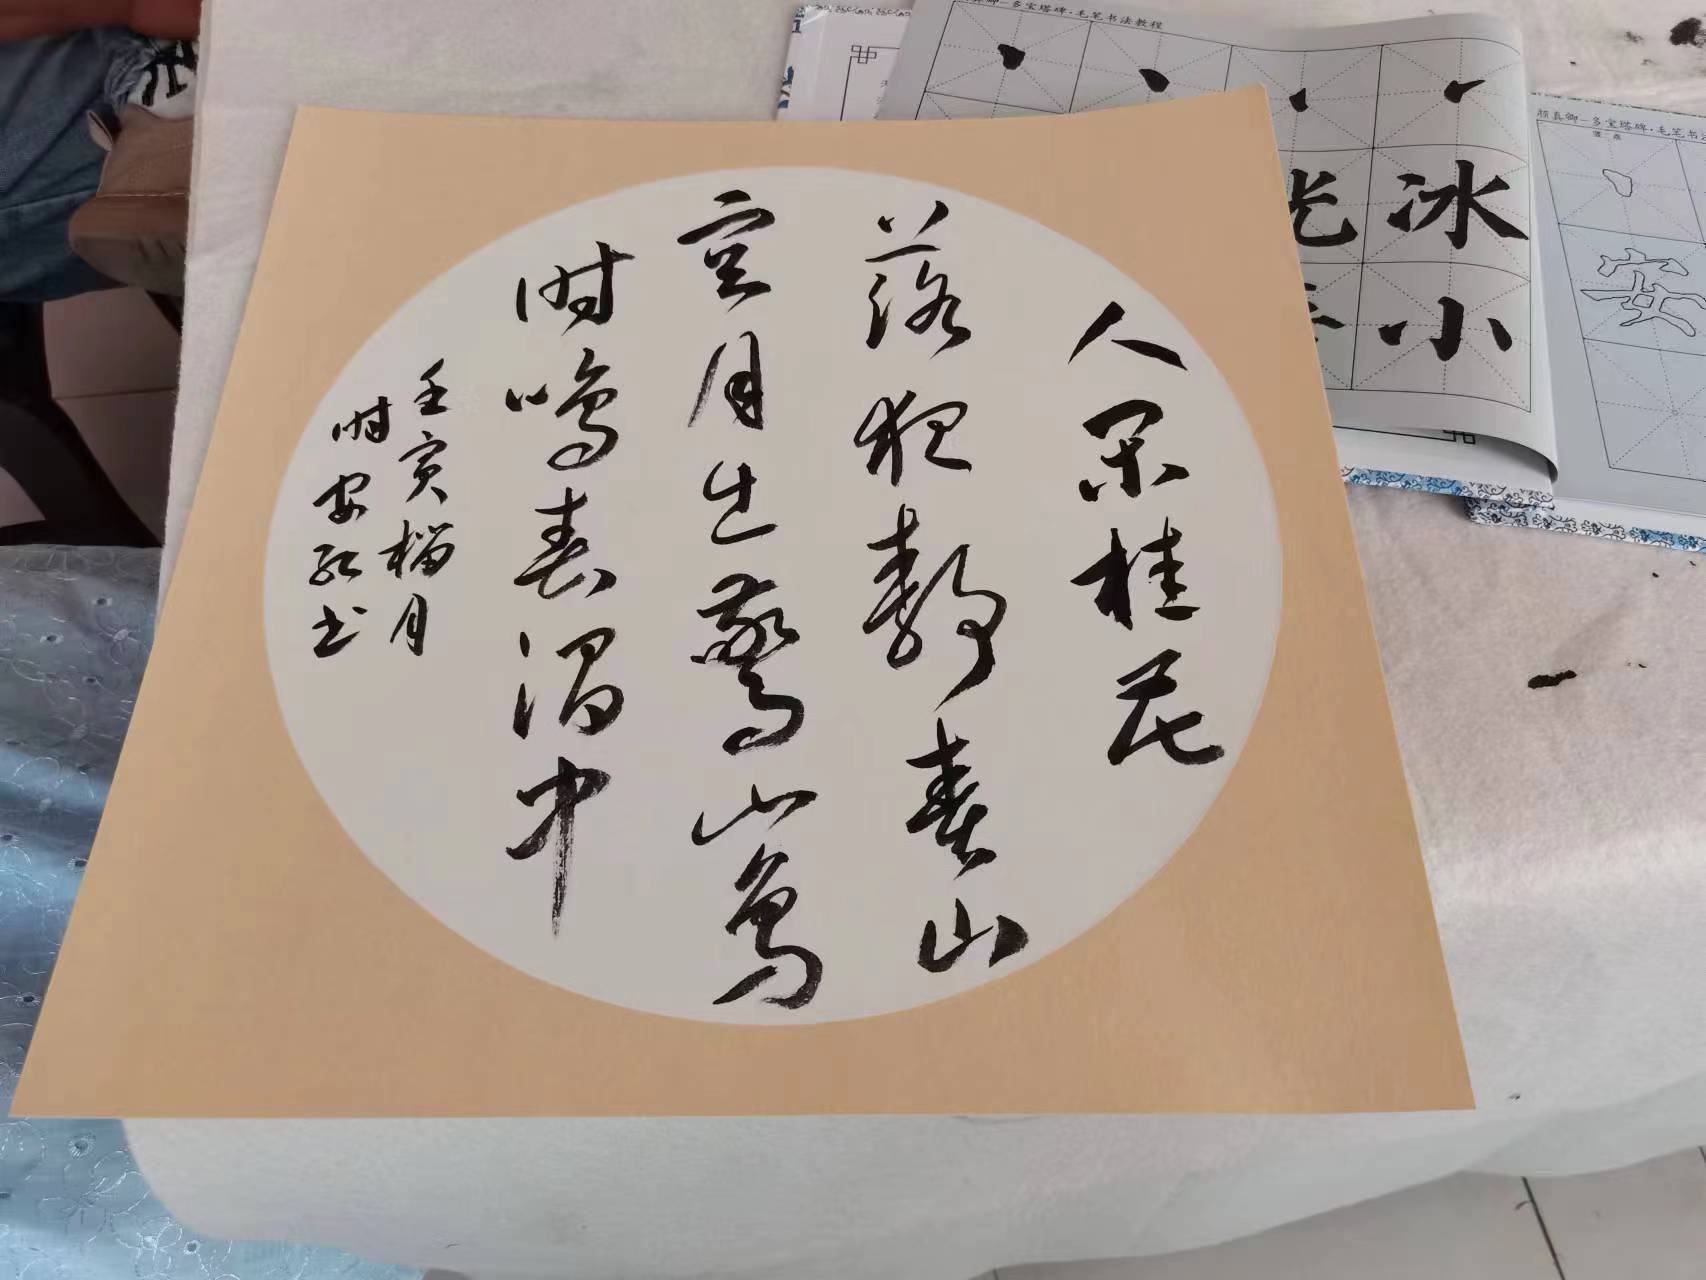 人闲桂花
落夜静春山
空月出惊山鸟
时鸣春涧中
壬寅榴月
时安红书
真卿—多宝塔碑·毛笔书法教程
冰
小
颜真卿—多宝塔碑·毛笔书法
安